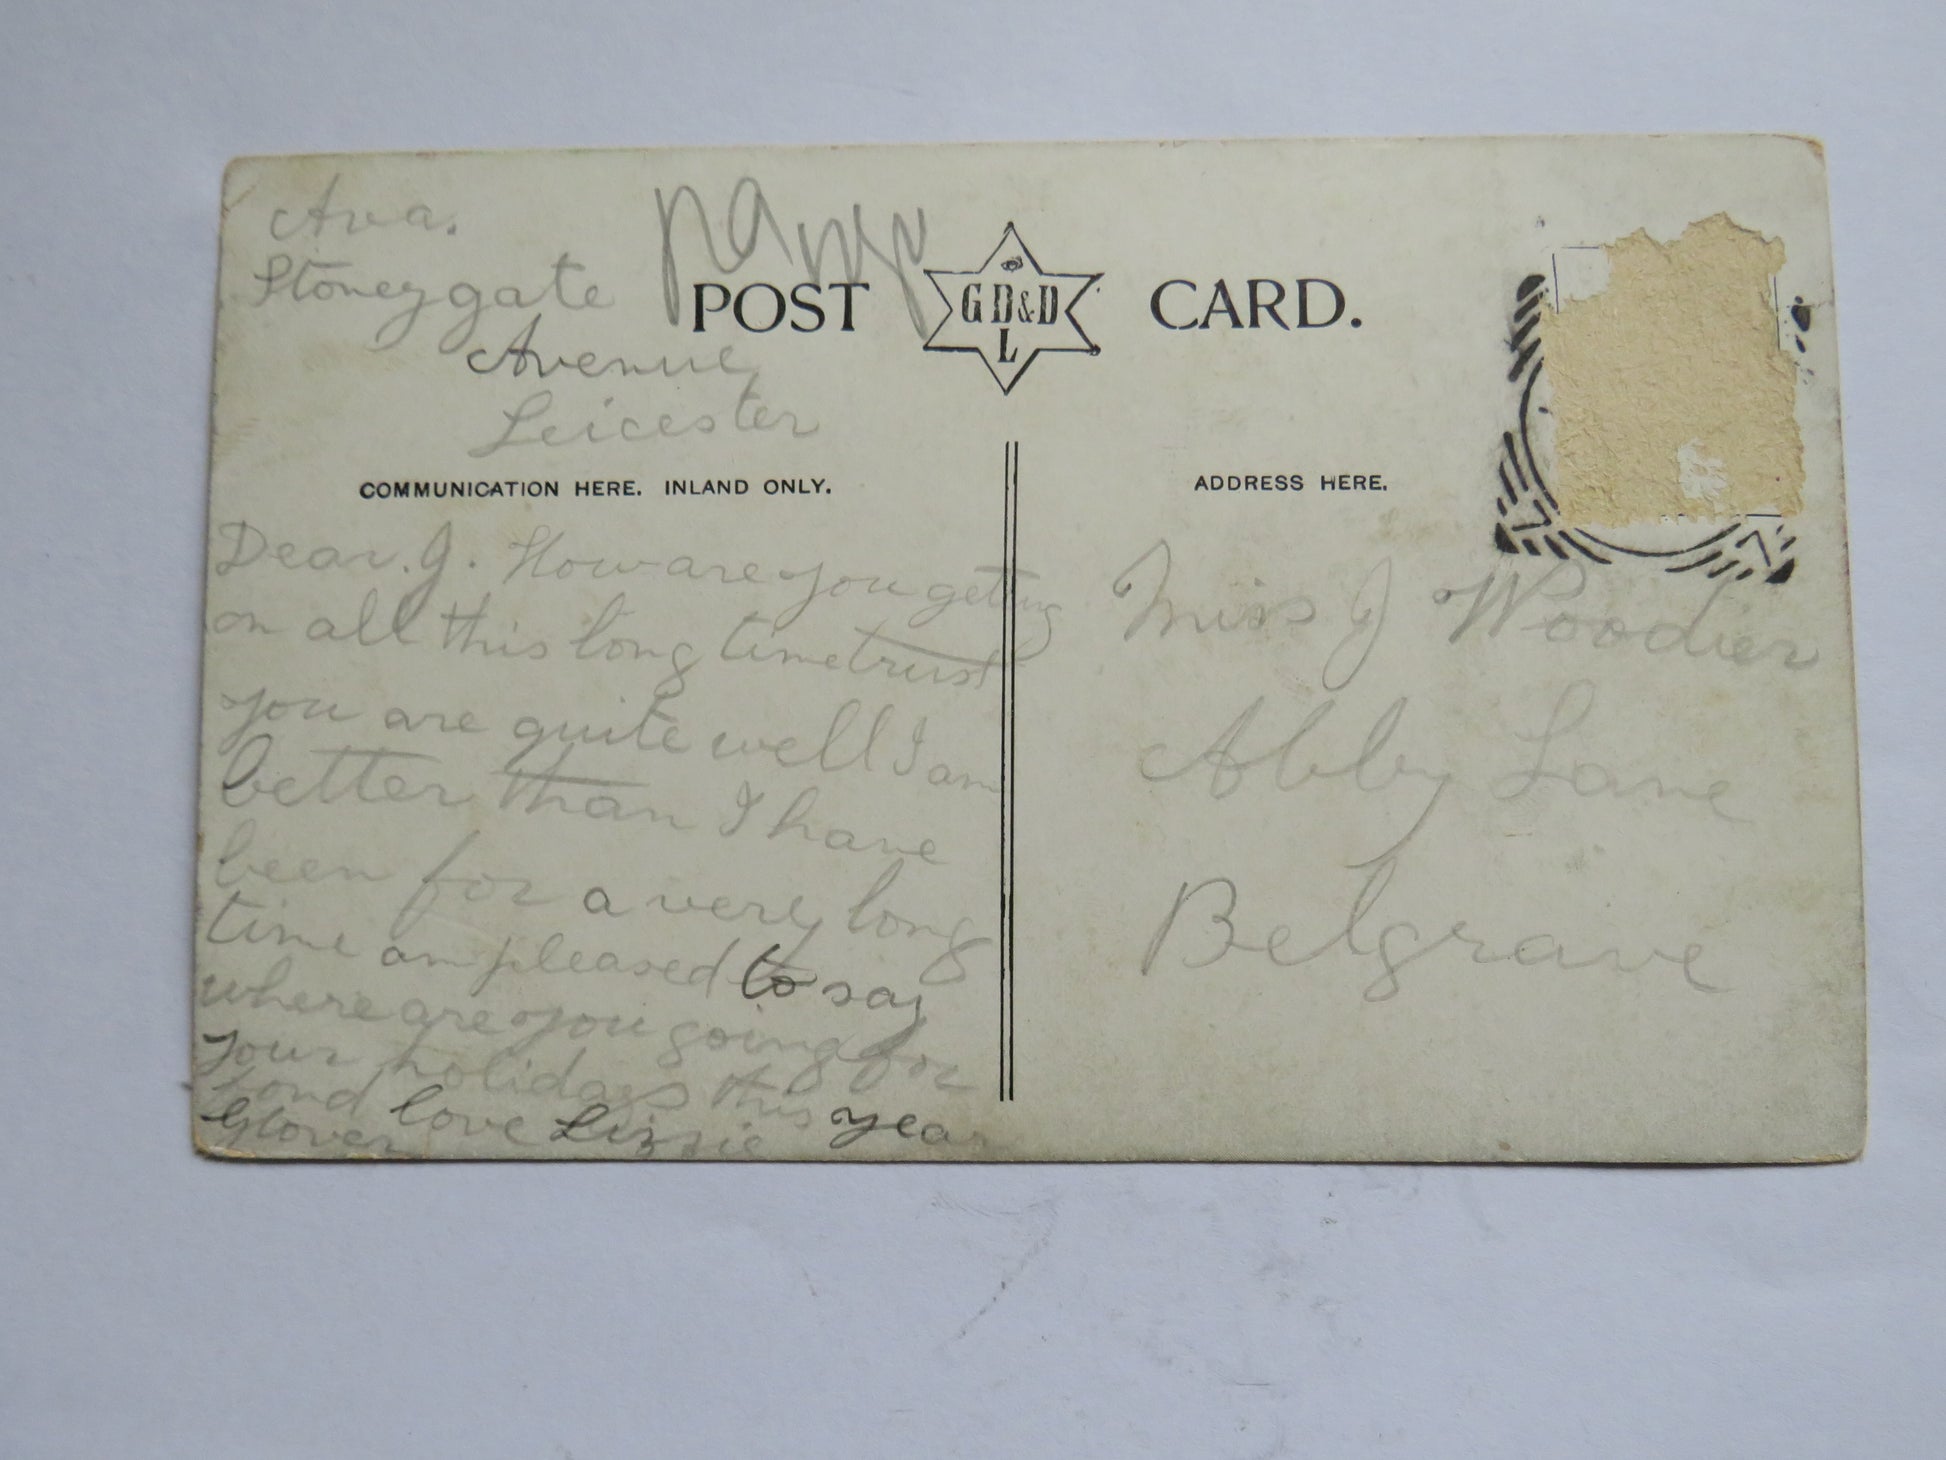 Ava.
Stoneygate
Avenue
Leicester
POST CARD.
G D&D
L
COMMUNICATION HERE. INLAND ONLY.
Dear. J. How are you getting
on all this long time trust
you are quite well I am
better than I have
been for a very long
time am pleased to say
where are you going for
your holidays this year
fond love Lizzie
Glover
ADDRESS HERE.
Miss J Woodier
Abby Lane
Belgrave